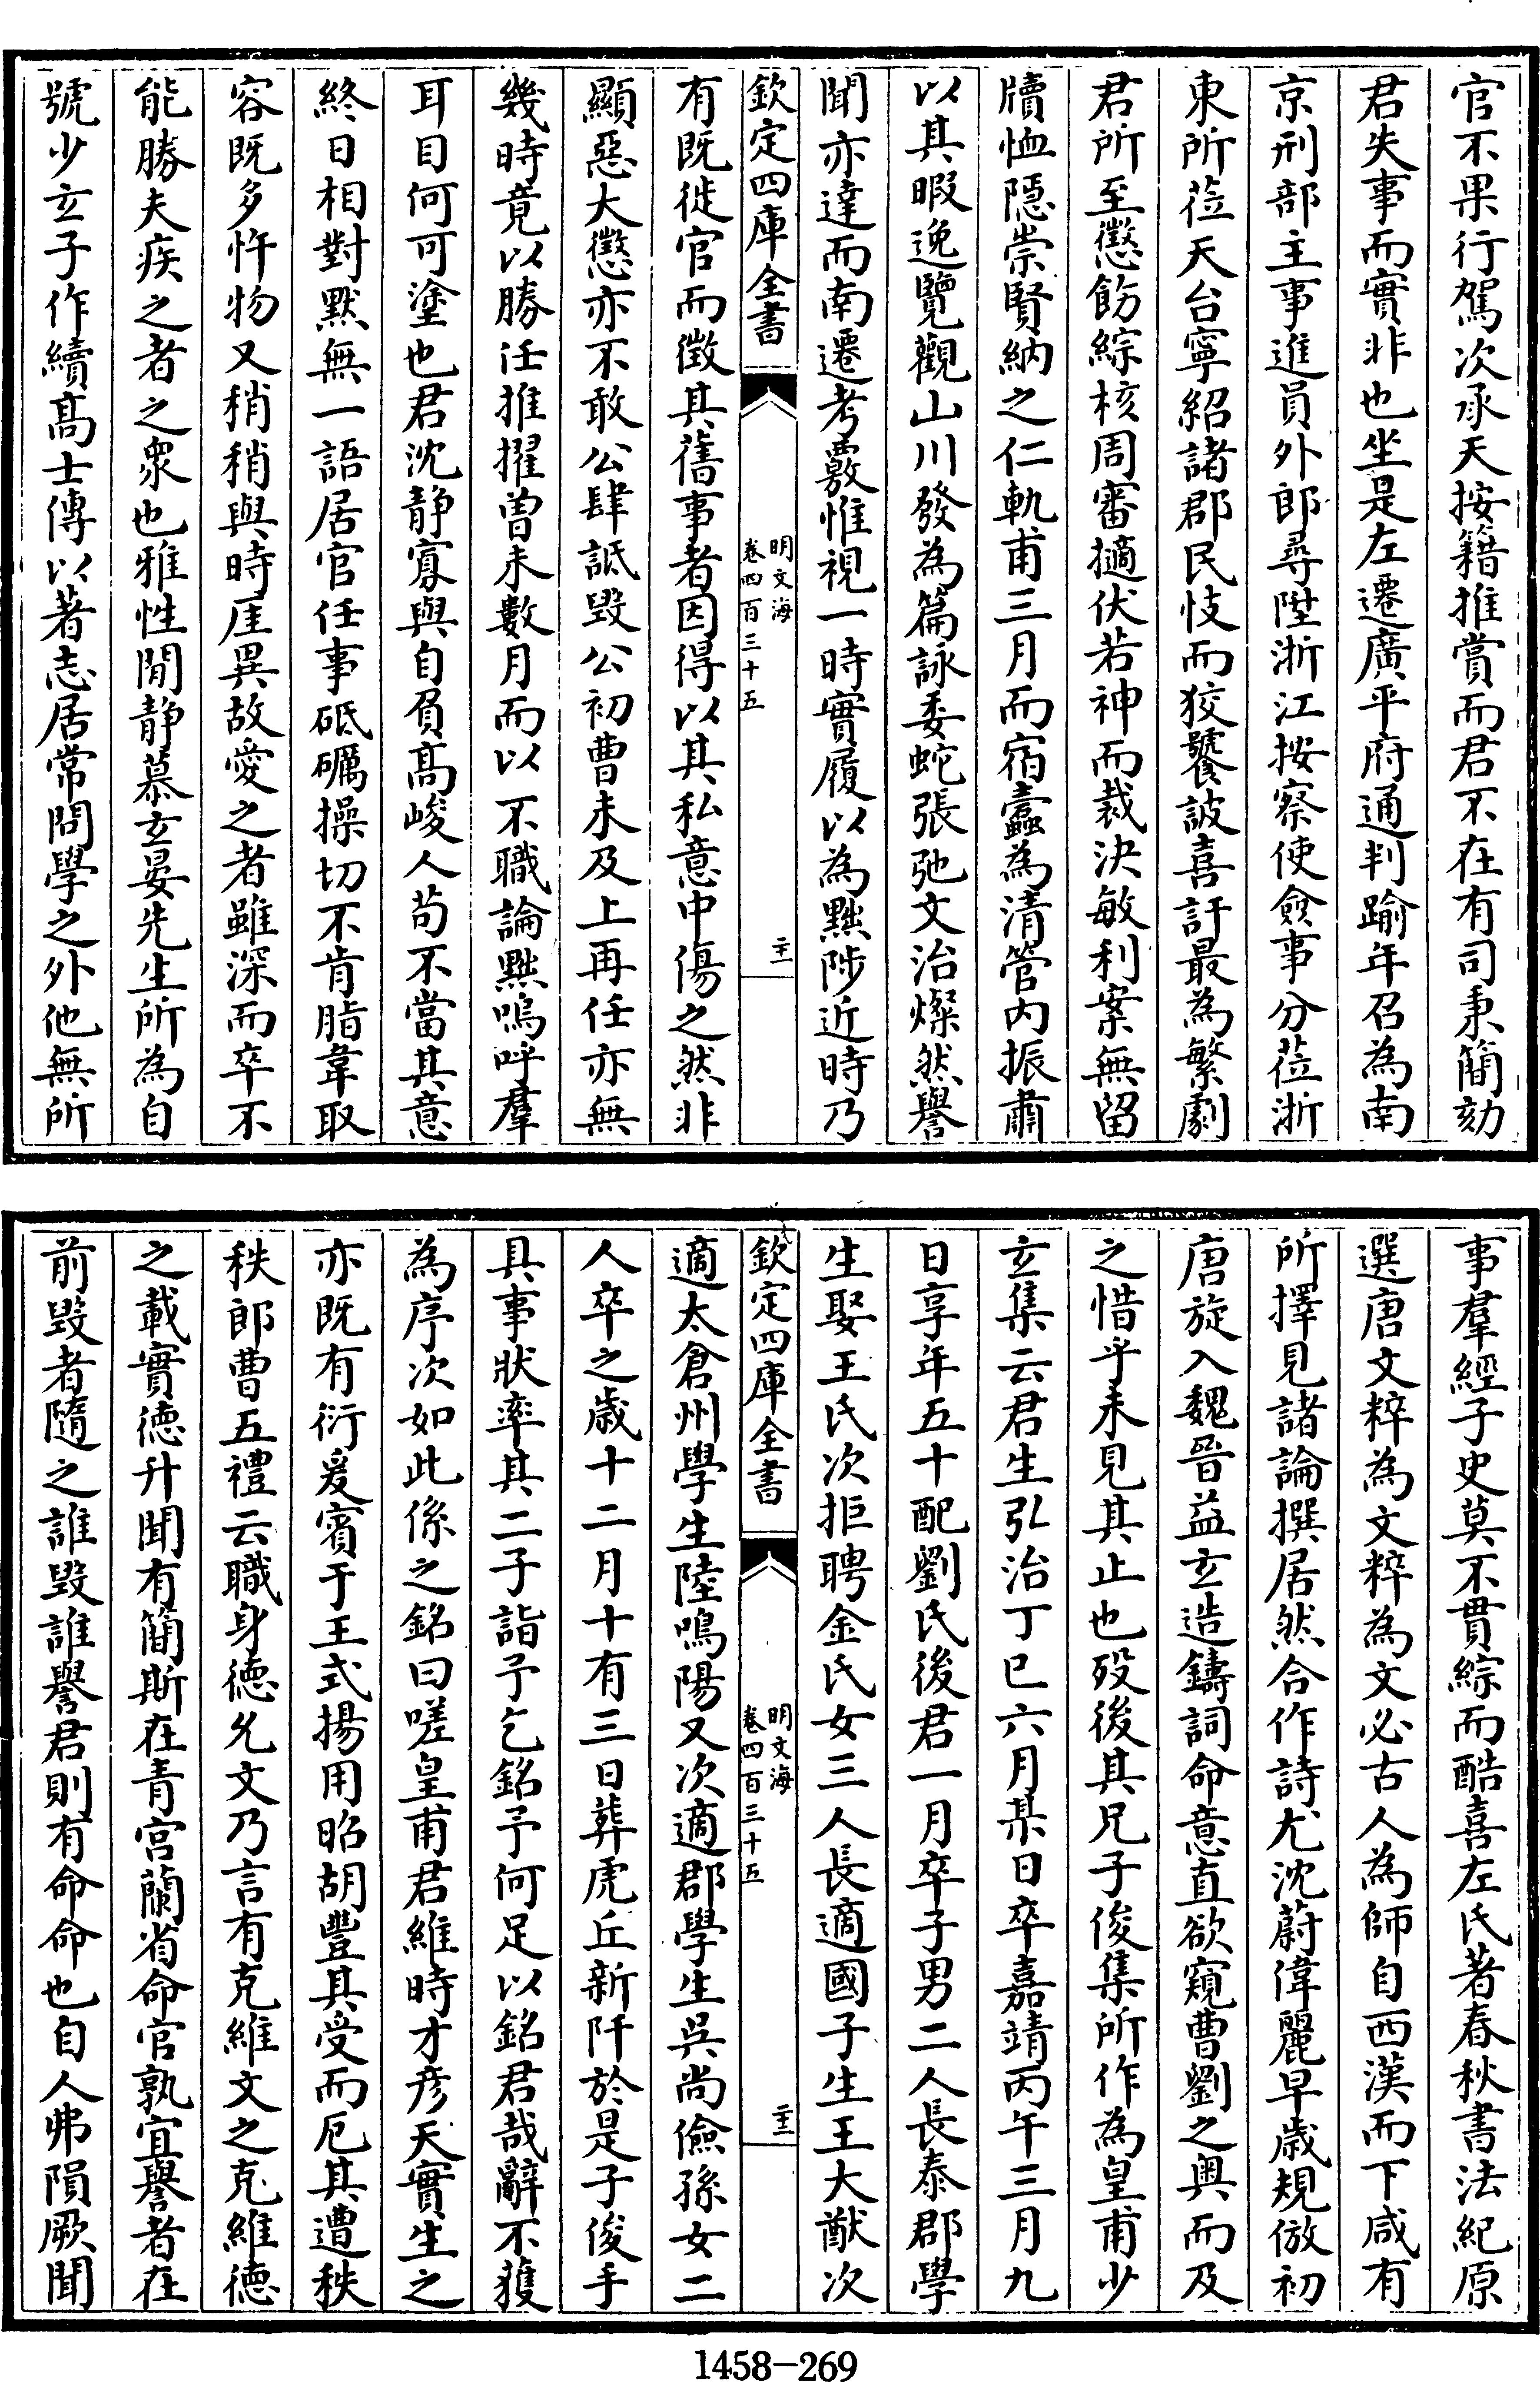 官不果行駕次承天按籍推賞而君不在有司秉簡劾
君失事而實非也坐是左遷廣平府通判踰年召為南
京刑部主事進員外郎尋陞浙江按察使僉事分蒞浙
東所蒞天台寧紹諸郡民忮而狡饕詖喜訐最為繁劇
君所至懲飭綜核周審擿伏若神而裁決敏利案無留
牘恤隱崇賢納之仁軌甫三月而宿蠹為清管內振肅
以其暇逸覽觀山川發為篇詠委蛇張弛文治燦然譽
聞亦達而南遷考覈惟視一時實履以為黜陟近時乃
欽定四庫全書
明文海
卷四百三十五
二十一
有既徙官而徵其舊事者因得以其私意中傷之然非
顯惡大懲亦不敢公肆詆毀公初曹未及上再任亦無
幾時竟以勝任推擢曾未數月而以不職論黜嗚呼羣
耳目何可塗也君沈靜寡與自負高峻人苟不當其意
終日相對默無一語居官任事砥礪操切不肯脂韋取
容既多忤物又稍稍與時厓異故愛之者雖深而卒不
能勝夫疾之者之衆也雅性閒靜慕玄晏先生所為自
號少玄子作續高士傳以著志居常問學之外他無所
事羣經子史莫不貫綜而酷喜左氏著春秋書法紀原
選唐文粹為文粹為文必古人為師自西漢而下咸有
所擇見諸論撰居然合作詩尤沈蔚偉麗早歲規倣初
唐旋入魏晉益玄造鑄詞命意直欲窺曹劉之奧而及
之惜乎未見其止也歿後其兄子俊集所作為皇甫少
玄集云君生弘治丁巳六月某日卒嘉靖丙午三月九
日享年五十配劉氏後君一月卒子男二人長泰郡學
生娶王氏次拒聘金氏女三人長適國子生王大猷次
欽定四庫全書
明文海
卷四百三十五
二十二
適太倉州學生陸鳴陽又次適郡學生吳尚儉孫女二
人卒之歲十二月十有三日葬虎丘新阡於是子俊手
具事狀率其二子詣予乞銘予何足以銘君哉辭不獲
為序次如此係之銘曰嗟皇甫君維時才彥天實生之
亦既有衍爰賓于王式揚用昭胡豐其受而厄其遭秩
秩郎曹五禮云職身德允文乃言有克維文之克維德
之載實德升聞有簡斯在青宮蘭省命官孰宜譽者在
前毀者隨之誰毀誰譽君則有命命也自人弗隕厥聞
1458-269